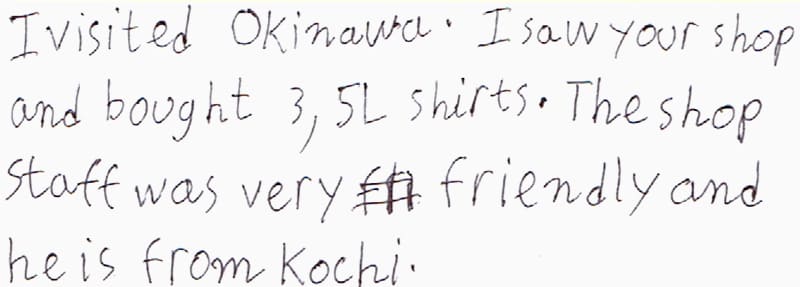 I visited Okinawa. I saw your shop
and bought 3, 5L shirts. The shop
staff was very friendly and
he is from Kochi.